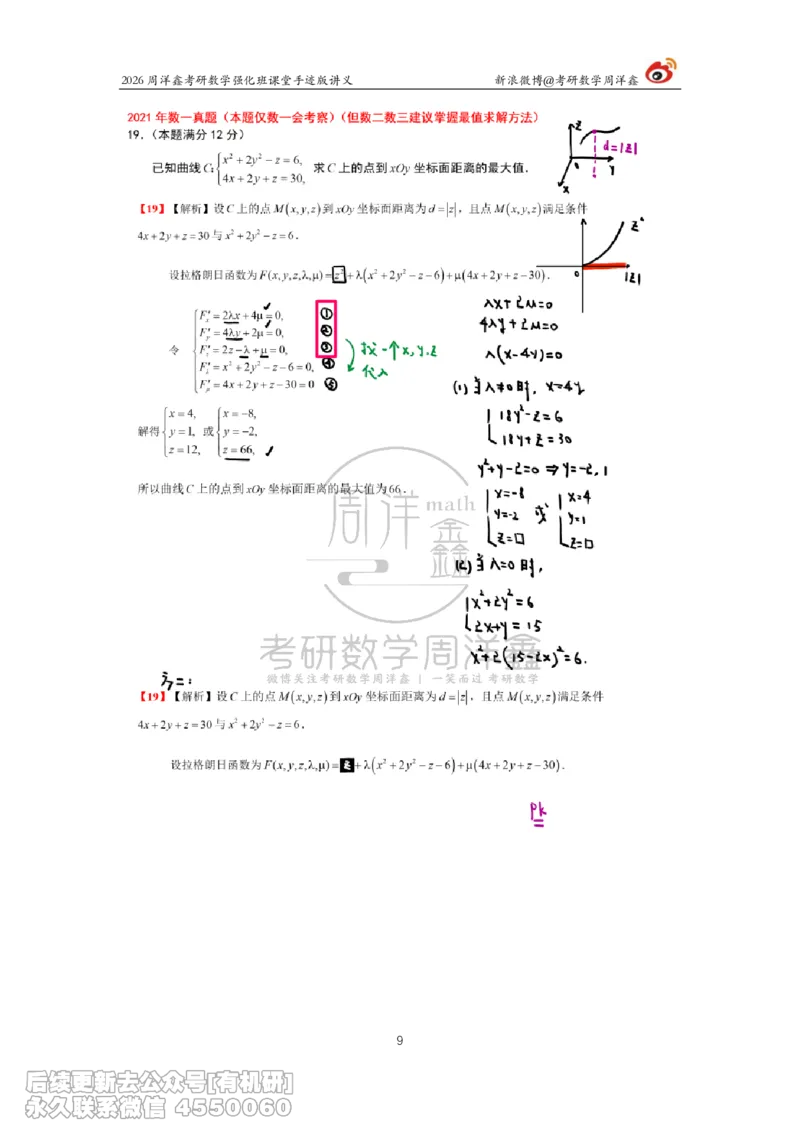 2026 周洋鑫考研数学强化班课堂手迹版讲义 新浪微博@考研数学周洋鑫
2021 年数一真题（本题仅数一会考察）（但数二数三建议掌握最值求解方法）
19.（本题满分 12 分）
已知曲线 C: { x² + 2y² − z = 6, 4x + 2y + z = 30, 求 C 上的点到 xOy 坐标面距离的最大值.
z
d=|z|
0
y
x
【19】【解析】设 C 上的点 M(x,y,z) 到 xOy 坐标面距离为 d = |z|，且点 M(x,y,z) 满足条件
4x + 2y + z = 30 与 x² + 2y² − z = 6.
z²
0
|z|
设拉格朗日函数为 F(x,y,z,λ,μ) = z² + λ(x² + 2y² − z − 6) + μ(4x + 2y + z − 30).
令
F′x = 2λx + 4μ = 0, ①
F′y = 4λy + 2μ = 0, ②
F′z = 2z − λ + μ = 0, ③
F′λ = x² + 2y² − z − 6 = 0, ④
F′μ = 4x + 2y + z − 30 = 0 ⑤
找-个 x, y, z
代入
解得 { x = 4, y = 1, z = 12, 或 { x = −8, y = −2, z = 66,
所以曲线 C 上的点到 xOy 坐标面距离的最大值为 66.
λx+2μ=0
4λy+2μ=0
λ(x-4y)=0
(1) 当λ≠0时, x=4y
18y²-z=6
18y+z=30
y²+y-2=0 ⇒ y=-2, 1
x=-8 或 x=4
y=-2 y=1
z=□ z=□
(2) 当λ=0时,
x²+2y²=6
2x+y=15
x²+2(15-2x)²=6.
周洋鑫 math
考研数学周洋鑫
微博关注考研数学周洋鑫 | 一笑而过 考研数学
方二:
【19】【解析】设 C 上的点 M(x,y,z) 到 xOy 坐标面距离为 d = |z|，且点 M(x,y,z) 满足条件
4x + 2y + z = 30 与 x² + 2y² − z = 6.
设拉格朗日函数为 F(x,y,z,λ,μ) = z + λ(x² + 2y² − z − 6) + μ(4x + 2y + z − 30).
PK
9
后续更新去公众号[有机研]
永久联系微信 4550060